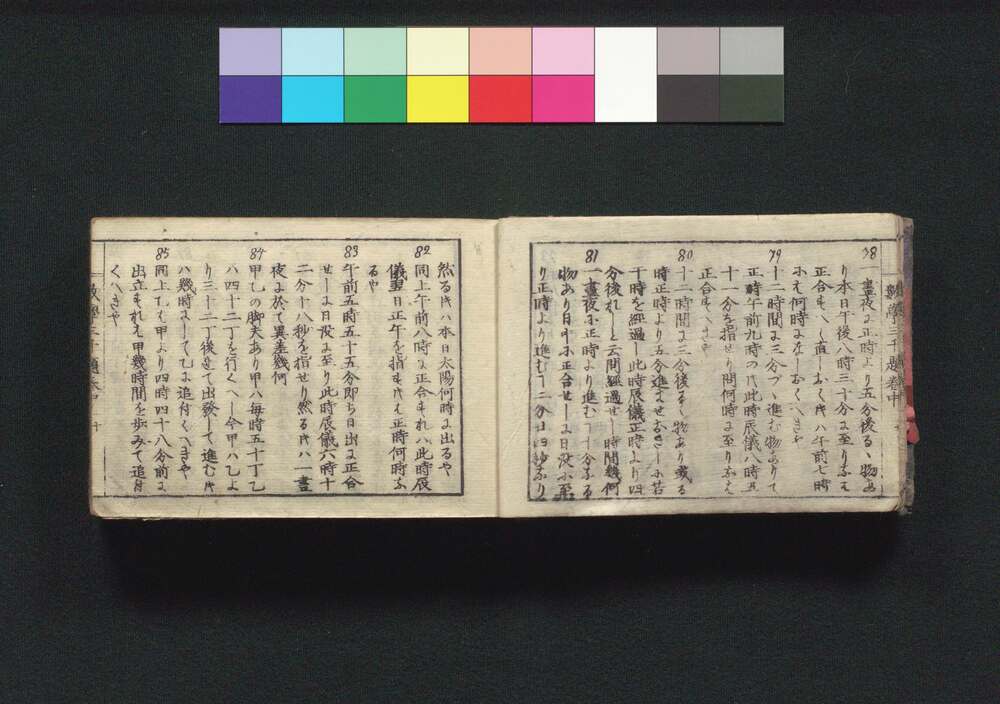 数學三千題卷中
78
一晝夜に正時より五分後るゝ物あ
り本日午後八時三十分に至りなば
正合すべし直しおくには午前七時
にて何時になしおくべきや
79
十二時間に三分づゝ進む物ありて
正時午前九時のとき此時辰儀八時五
十一分を指せり問何時に至りなば
正合すべきや
80
十二時間に三分後るゝ物あり或る
時正時より五分進ませおきしに若
干時を經過し此時辰儀正時より四
分後れしと云問經過せし時間幾何
81
一晝夜に正時より進む十分なる
物あり日出に正合せしに日沒に至
り正時より進む二分
然るときハ本日太陽何時に出るや
82
同上午前八時に正合すれハ此時辰
儀翌日正午を指すときは正時何時な
るや
83
午前五時五十五分即ち日出に正合
せしに日沒に至り此時辰儀六時十
二分十八秒を指せり然るときハ一晝
夜に於て異差幾何
84
甲乙の脚夫あり甲ハ毎時五十丁乙
ハ四十二丁を行くべし今甲ハ乙よ
り三十二丁後れて出發して進むとき
ハ幾時にして乙に追付くべきや
85
同上にて甲より四時四十八分前に
出立すれバ甲幾時間を歩みて追付
くべきや